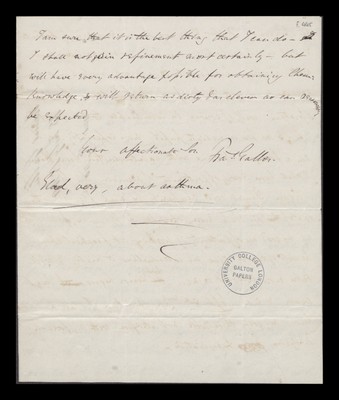 I am sure that it is the best thing that I can do –
I shall not gain refinement most certainly – but
will have every advantage possible for obtaining Chem:
Knowledge, & will return as dirty & as clever as can
be expected
Your affectionate Son
Fra Galton.
Glad, very, about asthma.
UNIVERSITY COLLEGE LONDON
GALTON
PAPERS